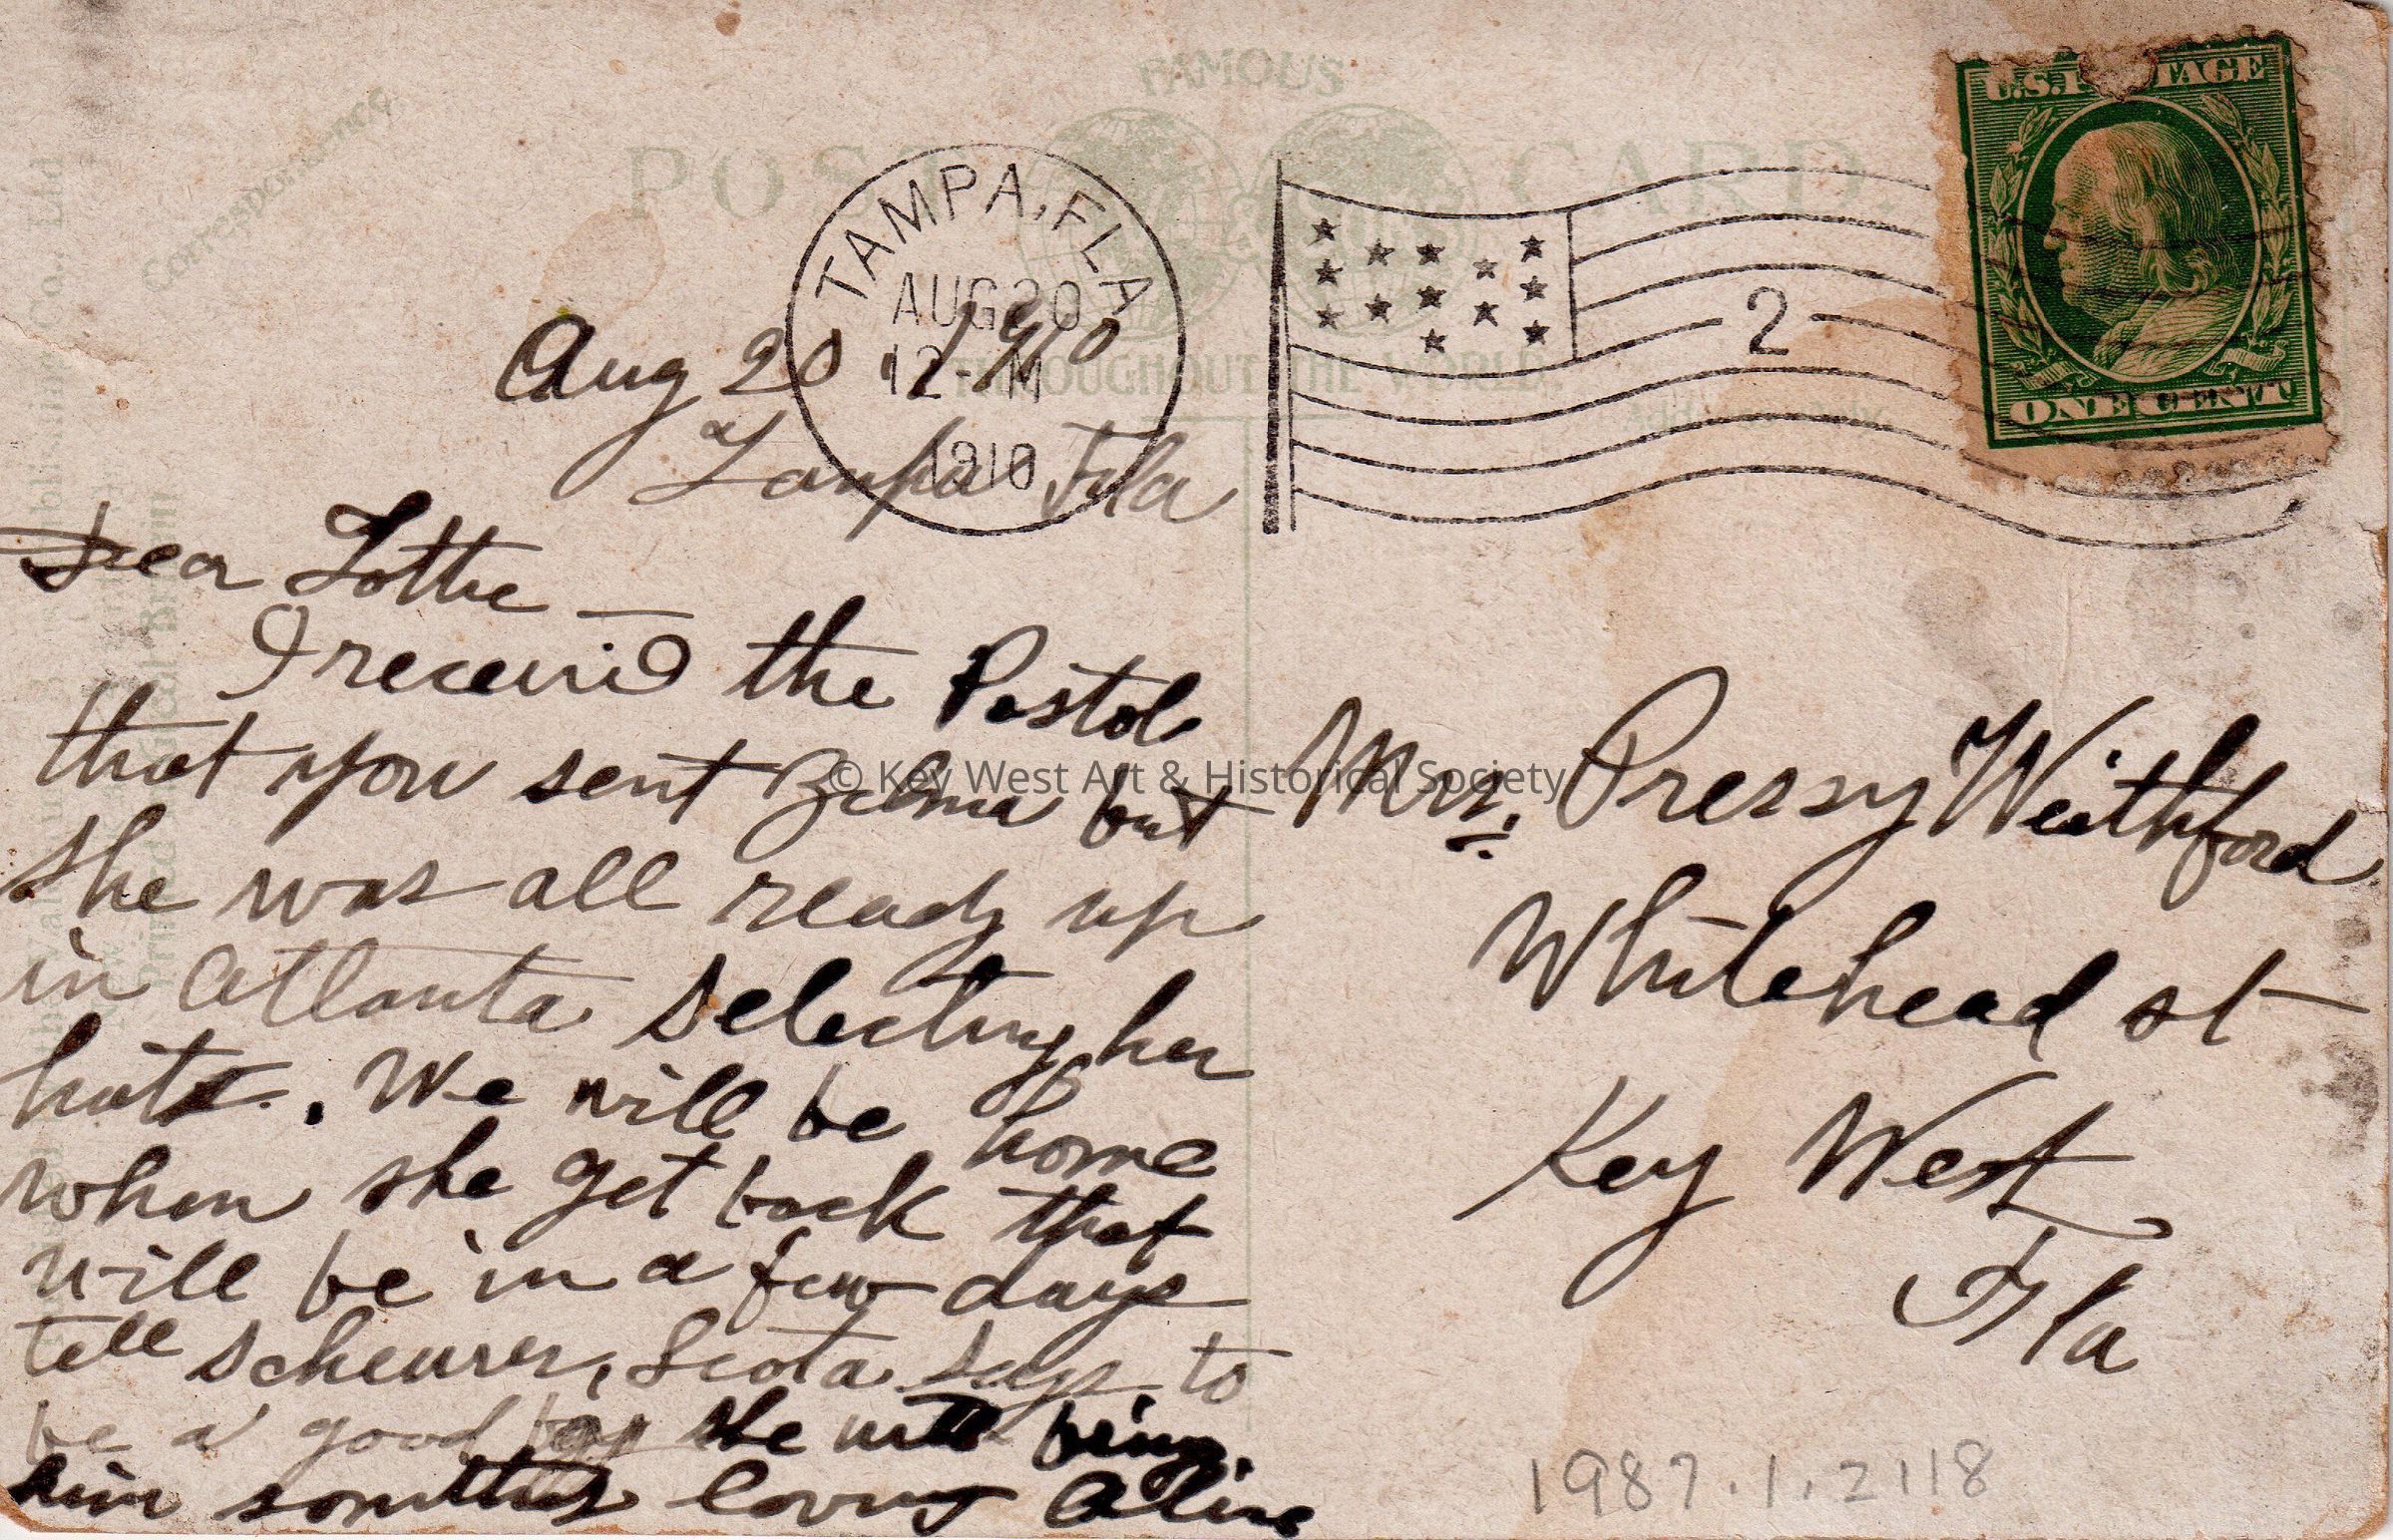 FAMOUS
POST CARD.
THROUGHOUT THE WORLD.
Correspondence.
TAMPA, FLA
AUG 20
12-M
1910
2
U.S. POSTAGE
ONE CENT
Aug 20, 1910
Tampa Fla
Dear Lottie —
I received the Postal
that you sent Zelma but
she was all ready up
in Atlanta selecting her
hats. We will be home
when she get back that
will be in a few days
tell scheurer, Leota says to
be a good boy she will bring
him somthing loving Aline
Mrs. Pressy Weithford
Whitehead st
Key West
Fla
© Key West Art & Historical Society
1987.1.2118